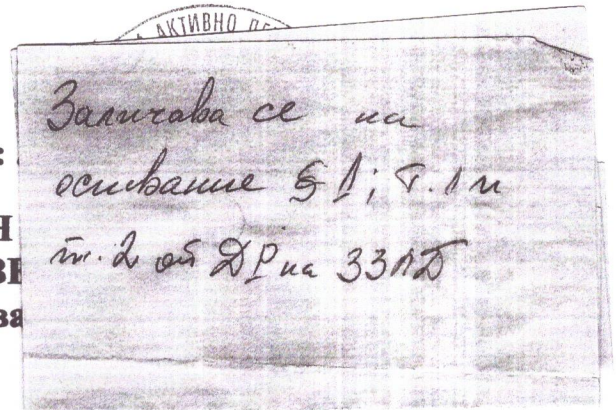 АКТИВНО
Заличава се на
основание § 1; т. 1 и
т. 2 от ДР на ЗЗЛД